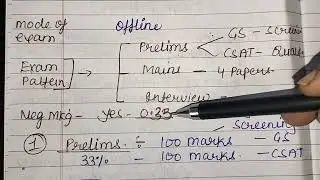 mode of exam offline
Exam Pattern
Prelims GS - Screen
CSAT - Qual
Mains - 4 Papers
Interview
Neg Mkg - yes - 0.33
Screening
① Prelims ÷ 100 marks - GS
33% - 100 marks - CSAT